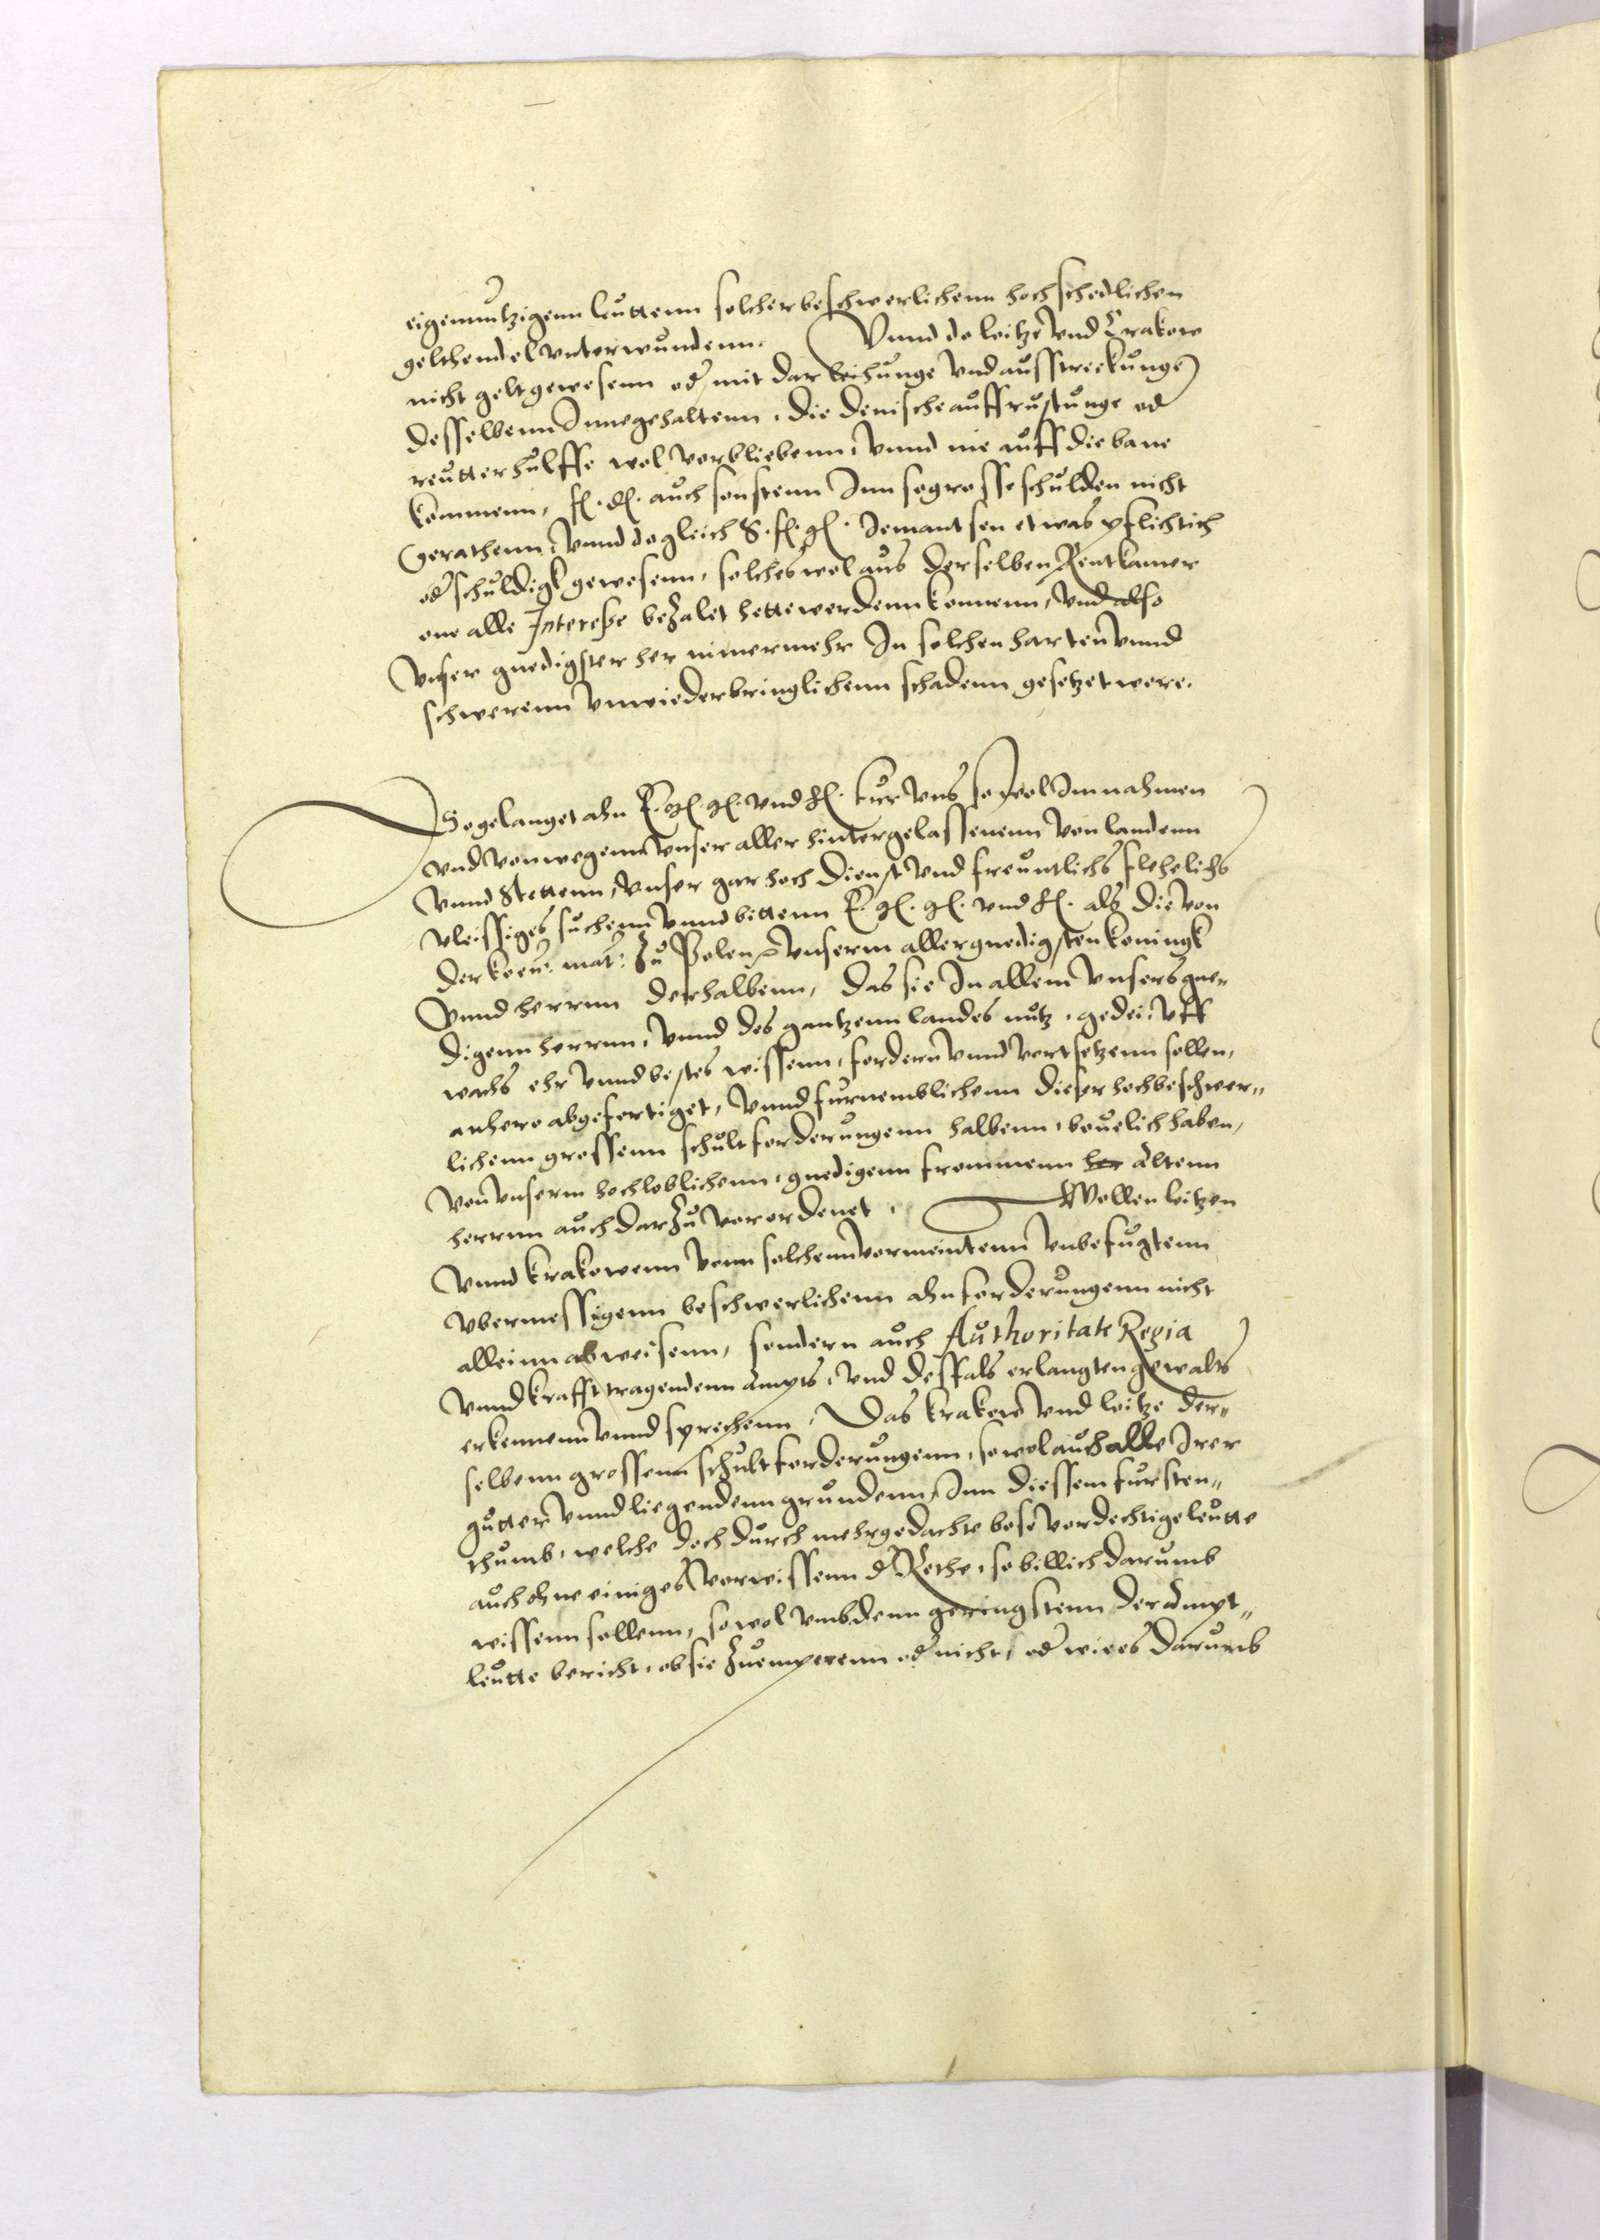 eigennutzigenn leuttenn solcher beschwerlichenn hochschedlichen
gelthendel vnterwundenn. Vnnd do loitze vnd Crakow
nicht gelt gewesenn od mit dar leihunge vnd ausstreckunge
desselbenn Innegehaltenn, die denische auffrustunge od
reutterhulffe wol verbliebenn, vnnd nie auff die bane
kommenn, f. d. auch sonstenn Inn so grosse schulden nicht
gerathenn, vnnd do gleich S. f. g. Jemantsen etwas pflichtich
od schuldigk gewesenn, solches wol aus derselben Rentkamer
one alle Interesse bezalet hette werdenn konnenn, vnd also
vnser gnedigster her nimermehr In solchen harten vnnd
schwerenn vnwiederbringlichenn schadenn gesetzet were.
So gelanget ahn E. g. g. vnd h. fur vns so wol Im nahmen
vnd vonwegenn vnser aller hintergelassenenn von landenn
vnnd Stettenn, vnser gar hoch dienst vnd freuntlichs flehelichs
vleissiges suchenn vnnd bittenn E. g. g. vnd h. als die von
der koen: mat: zu Polen vnserm allergnedigsten koningk
vnnd herrnn derhalbenn, das sie In allem vnsers gne-
digenn herrnn, vnnd des gantzenn landes nutz, gedei, vff
wachs ehr vnnd bestes wissenn, fordern vnnd vortsetzenn sollen,
anhero abgefertiget, vnnd furnemblichenn dieser hochbeschwer-
lichenn grossenn schultforderungenn halbenn, beuelich haben,
von vnserm hochloblichenn, gnedigenn frommenn her altenn
herrnn auch darzu verordenet. Wollen loitzen
vnnd krakowenn vonn solchenn vermeintenn vnbefugtenn
vbermessigenn beschwerlichenn ahnforderungenn nicht
alleinn abweisenn, sondern auch Authoritate Regia
vnnd krafft tragendenn ampts, vnd desfals erlangten gewalts
erkennenn vnnd sprechenn, Das krakow vnd loitze der-
selbenn grossenn schultforderungenn, so wol auch alle Irer
gutter vnnd liegendenn grundenn, Inn diessem fursten-
thumb, welche doch durch mehrgedachte bose verdechtige leutte
auch ohne einiges vorwissenn d Rethe, so billich darumb
wissenn sollenn, so wol vmb denn geringstenn der Ampt-
leutte bericht, ob sie zuemperenn od nicht, od wie es darumb